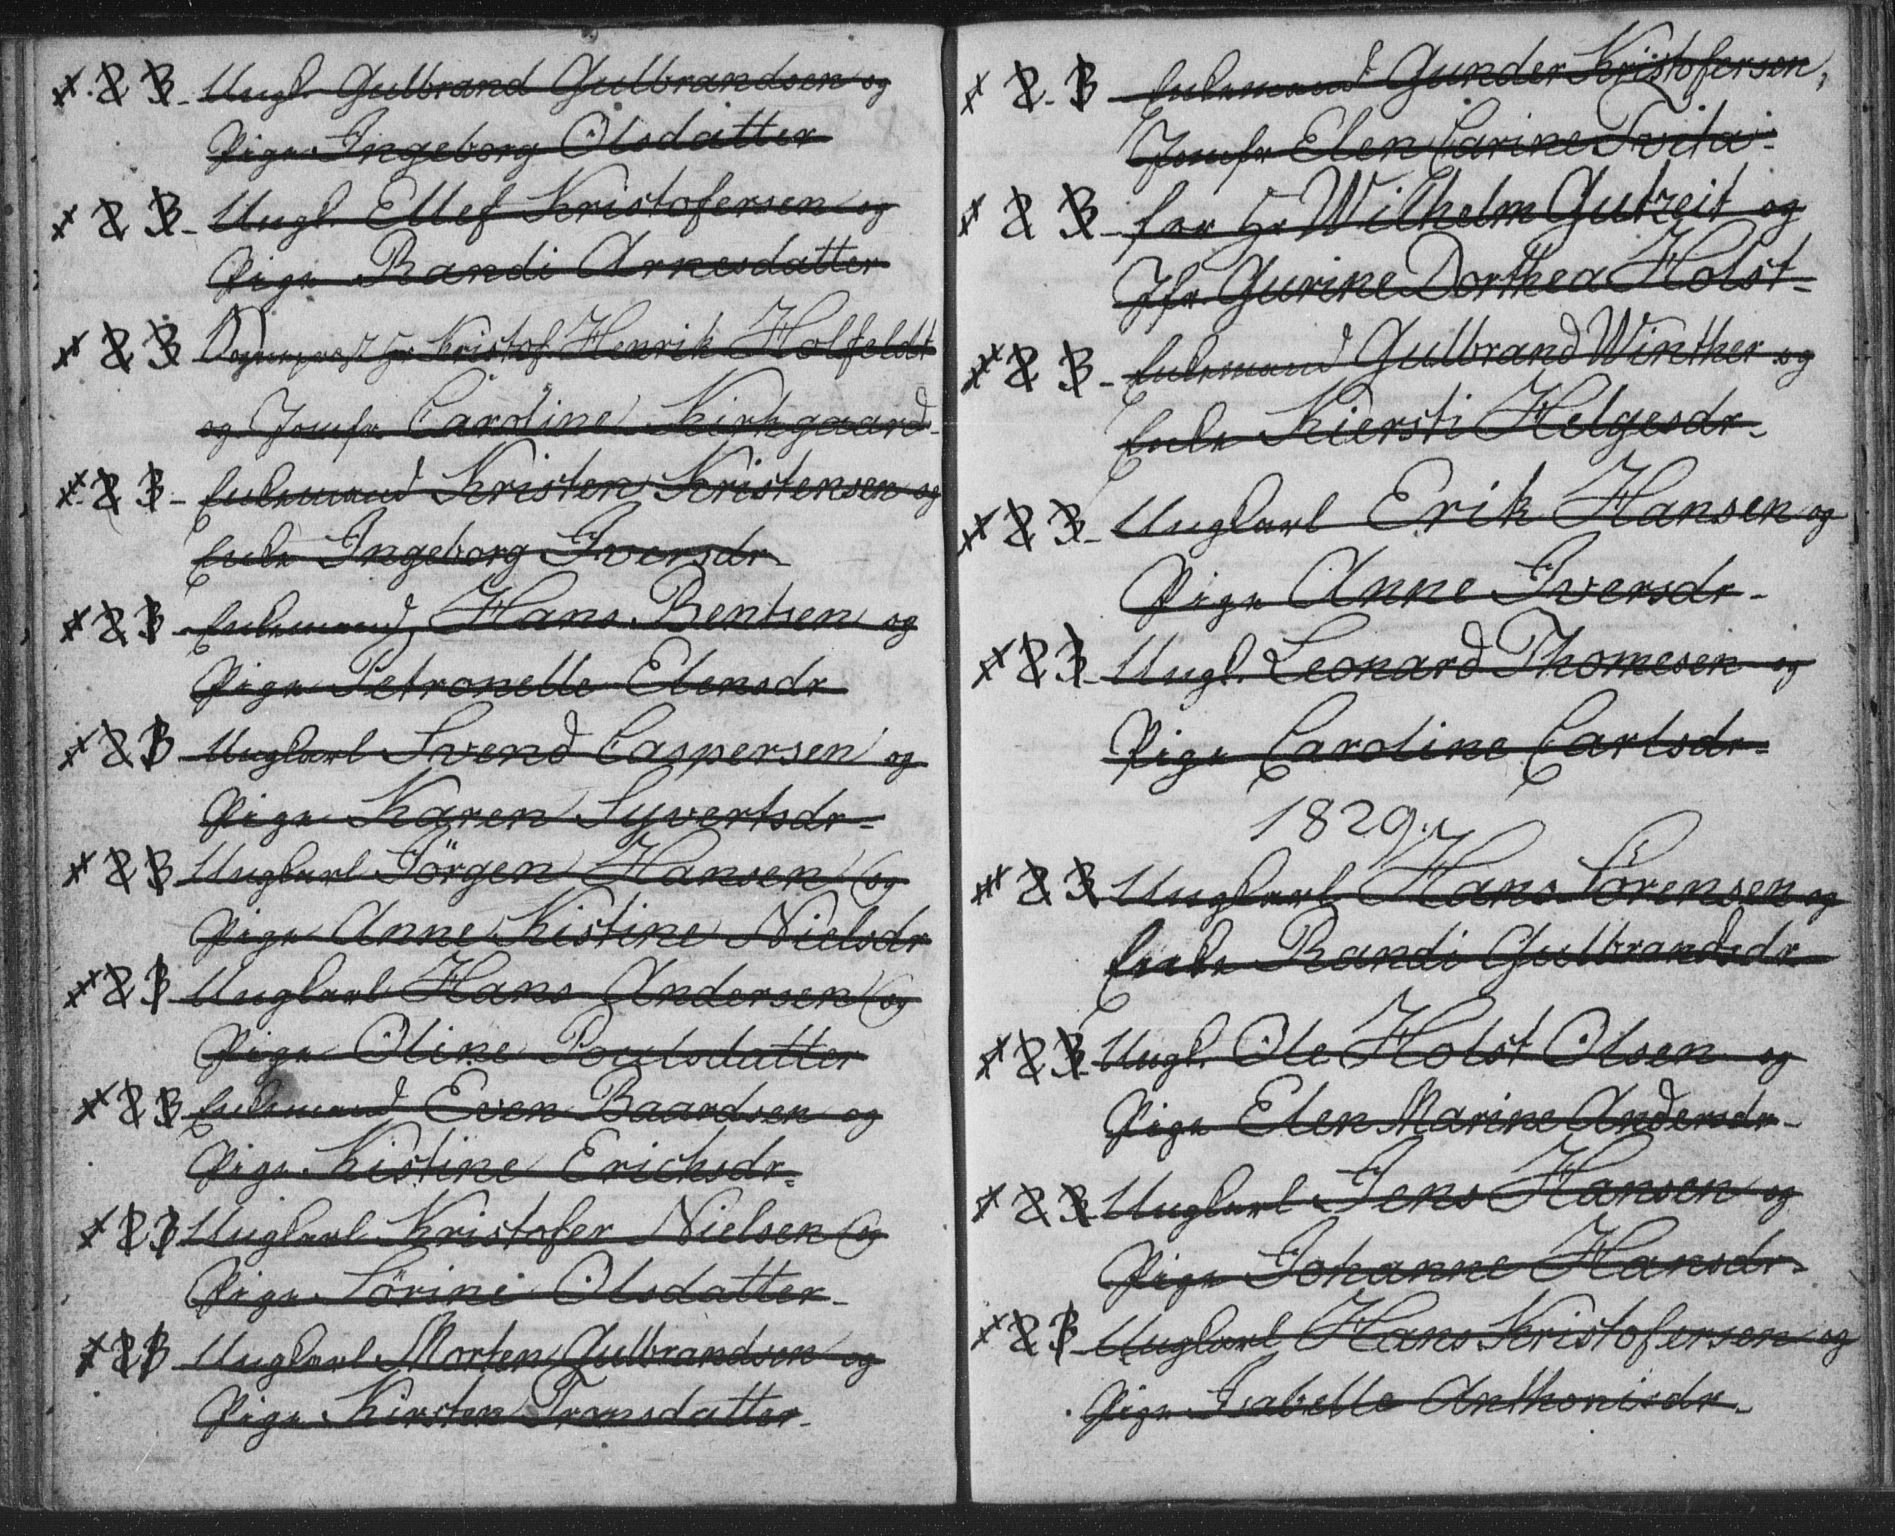 Ungk. Gulbrand Gulbrandsen og
Pige Ingeborg Olsdatter
Ungk. Ellef Kristofersen og
Pige Randi Arnesdatter
Sogneprest Hr Kristof. Henrik Holfeldt
og Jomfr. Caroline Kirkgaard
Enkemand Kristen Kristensen og
Enke Ingeborg Iversdr
Enkemand Hans Bentsen og
Pige Petronelle Elensdr
Ungkarl Svend Caspersen og
Pige Karen Syvertsdr
Ungkarl Jörgen Hansen og
Pige Anne Kistine Nielsdr
Ungkarl Hans Andersen og
Pige Oline Poulsdatter
Enkemand Even Baardsen og
Pige Kistine Erichsdr
Ungkarl Kristofer Nielsen og
Pige Sörine Olsdatter
Ungkarl Morten Gulbrandsen og
Pige Kirsten Transdatter
Enkemand Gunder Kristofersen,
Jomfr Elen Carine
Hr Wilhelm Gutzeit og
Jfr. Gurine Dorthea Holst
Enkemand Gulbrand Winther og
Enke Kiersti Helgesdr
Ungkarl Erik Hansen og
Pige Anne Iversdr
Ungk. Leonard Thomesen og
Pige Caroline Carlsdr
1829.
Ungkarl Hans Sörensen og
Enke Randi Gulbrandsdr
Ungk. Ole Holst Olsen og
Pige Elen Marine Andersdr
Ungkarl Jens Hansen og
Pige Johanne Hansdr
Ungkarl Hans Kristofersen og
Pige Isabelle Anthonisdr